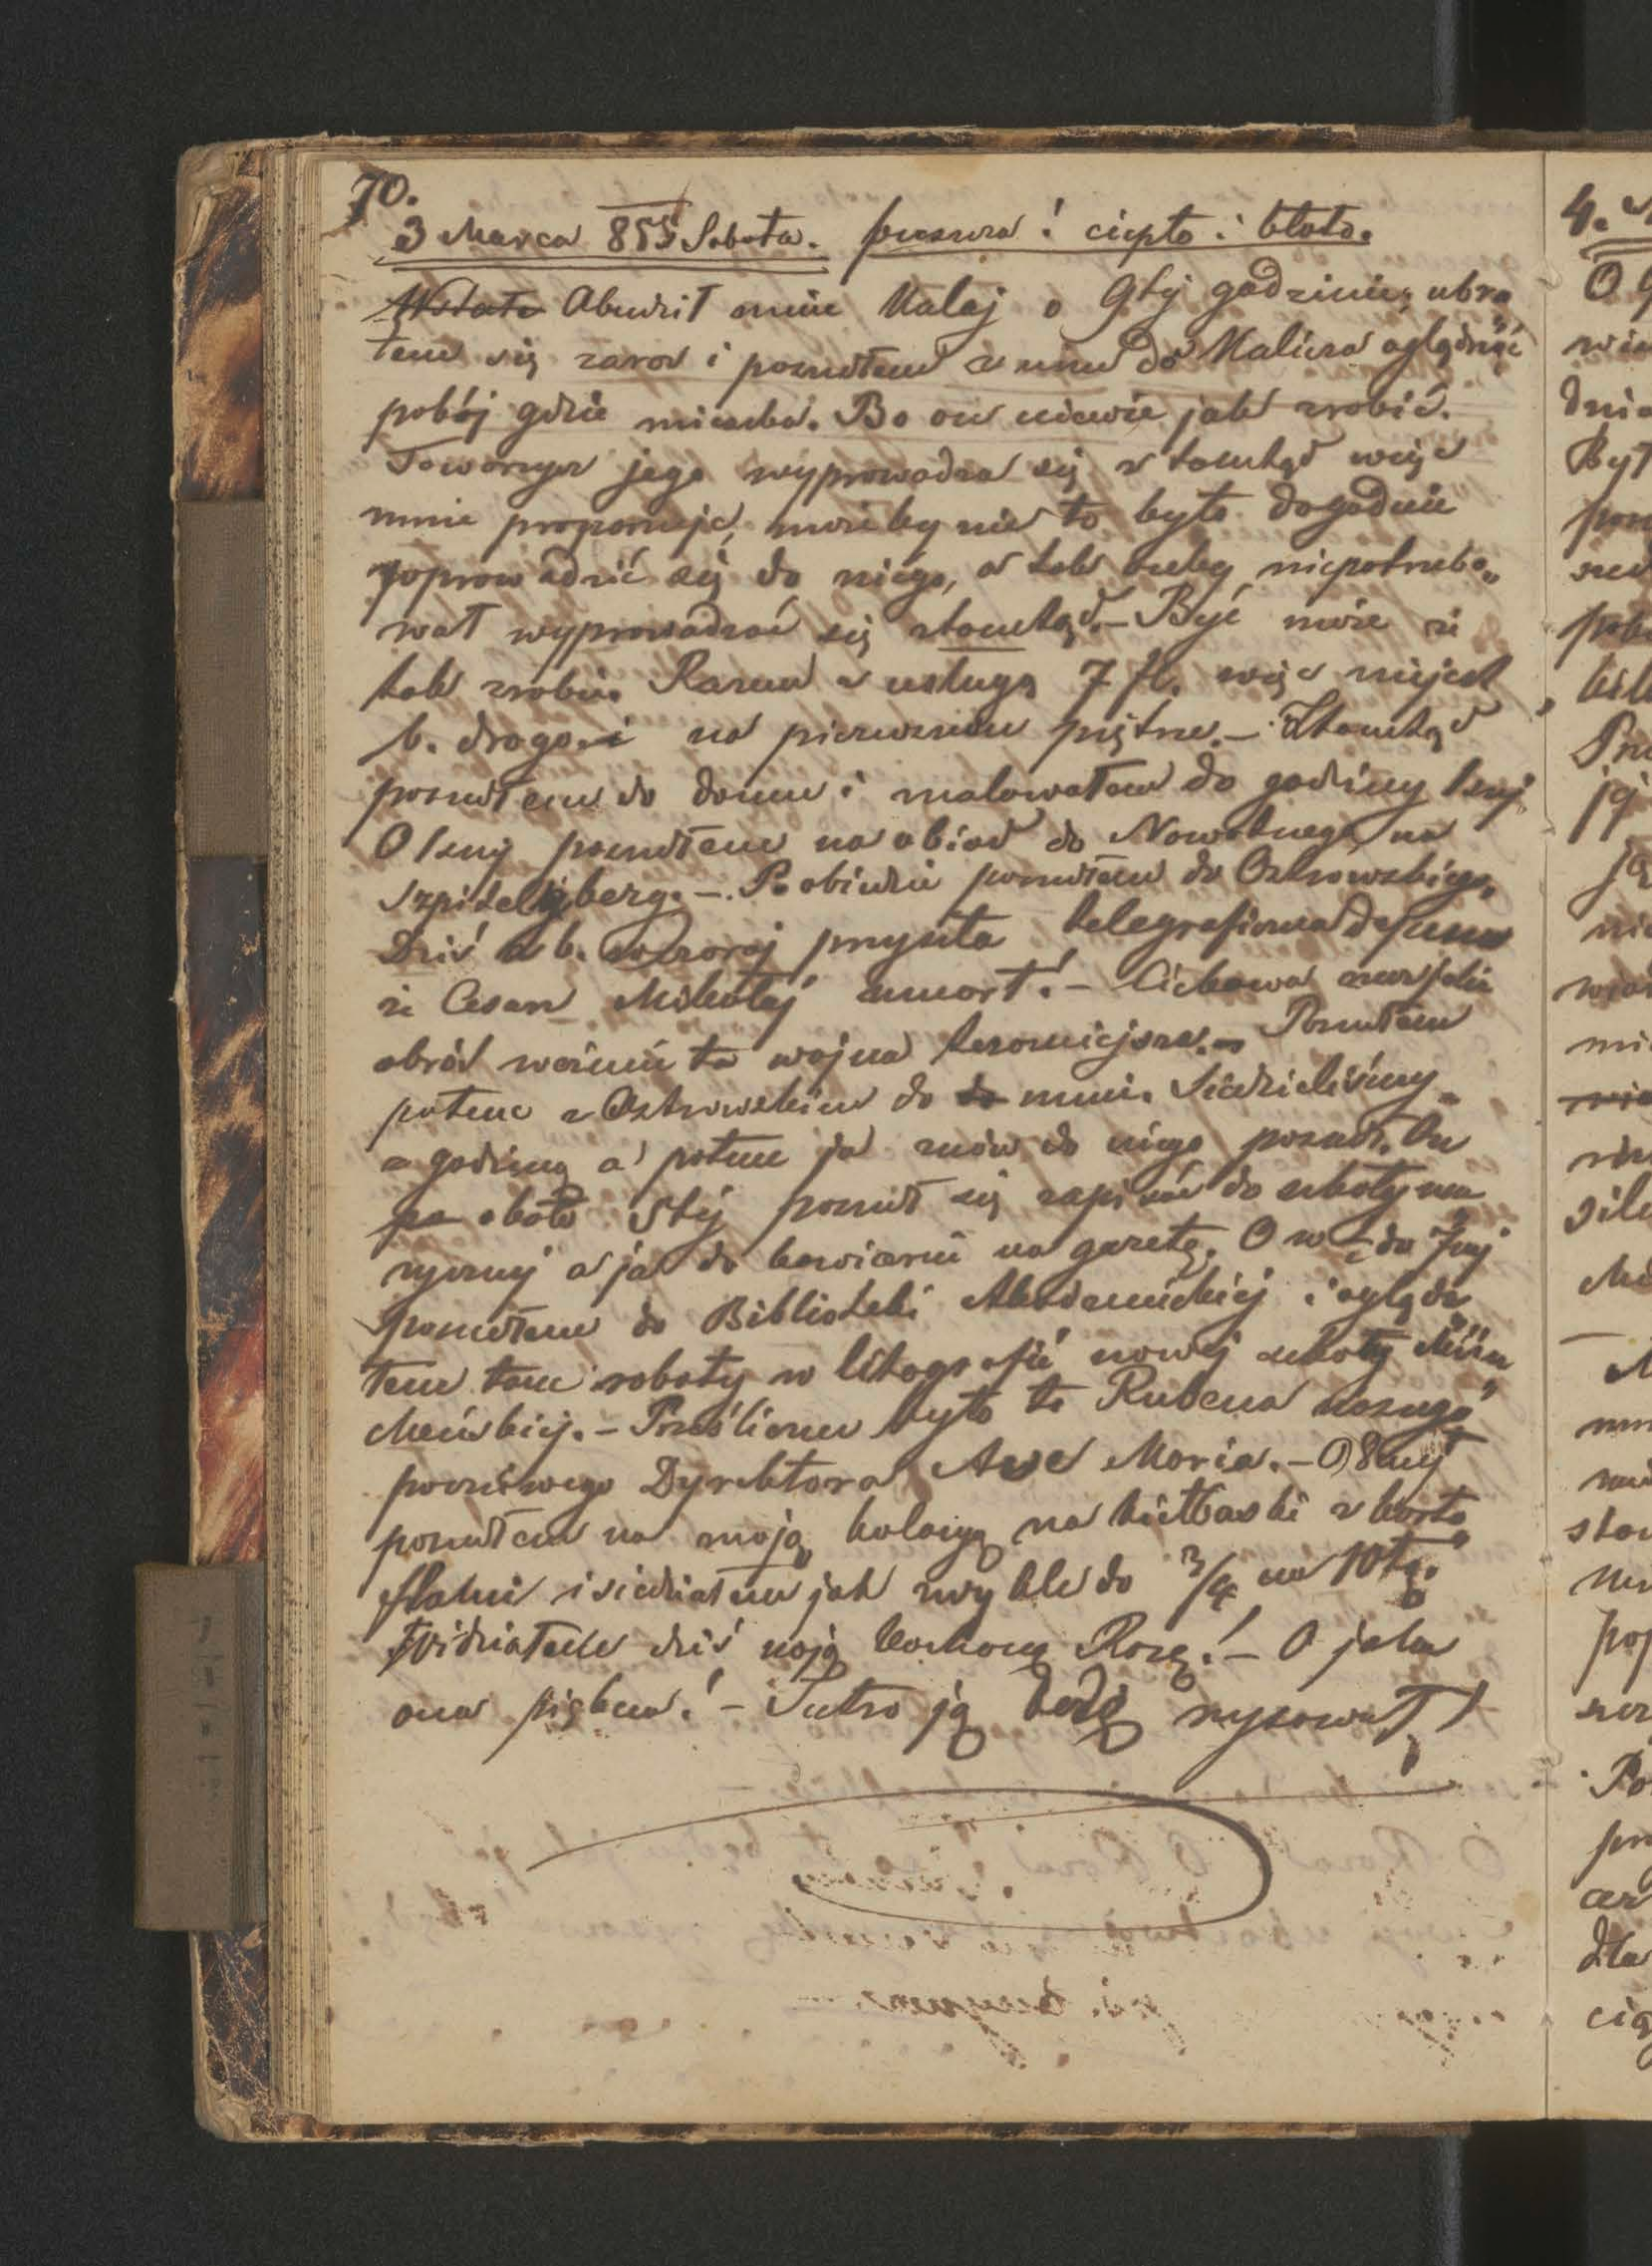 70.
3 Marca 855 Sobota. pieszura! ciepło i błoto.
Wstałe Abudził mnie Kalaj o 9téj godzinie; ubra
łem się zaraz i poszedłem z nim do Kalicza oglądnąć
pokój gdzie mieszka. Bo on niewie jak zrobić.
Towarzysz jego wyprowadza się z tamtąd więc
mnie proponuje, możeby mie to było dogodnie
poprowadzić się do niego, a tak onby niepotrzebo„
wał wyprowadzać się ztamtąd. – Być może że
tak zrobię. Razem z usługą 7 fl. więc niejest
b. drogo. i na pierwszem piętrze. – Ztamtąd
poszedłem do domu i malowałem do godziny 1szej
O 1szej poszedłem na obiad do Nowotnego na
Szpitelberg. – Po obiedzie poszedłem do Ostrowskiego.
Dziś a b. wczoraj przyszła telegraficzna depesza
że Cesarz Mikołaj umarł! – Ciekawa rzecz jaki
obrót weźmie ta wojna teraźniejsza. – Poszedłem
potem z Ostrowskim do do mnie. Siedzieliśmy
z godzinę a potem ja znów do niego poszedł. On
po około 5téj poszedł się zapisać do szkoły mu
zycznej a ja do kawiarni na gazetę. O w ½ do 7mej
poszedłem do Biblioteki Akademickiej i oglądа
łem tam roboty w litografii nowej szkoły Mün
cheńskiej. – Prześliczne było to Rubena naszego
poczciwego Dyrektora Ave Maria. – O 8mej
poszedłem na moją kolacyą na kiełbaski z karto
flami i siedziałem jak zwykle do ¾ na 10tą.
Widziałem dziś moją kochaną Rozę! – O jaka
ona piękna! – Jutro ją będę rysował!